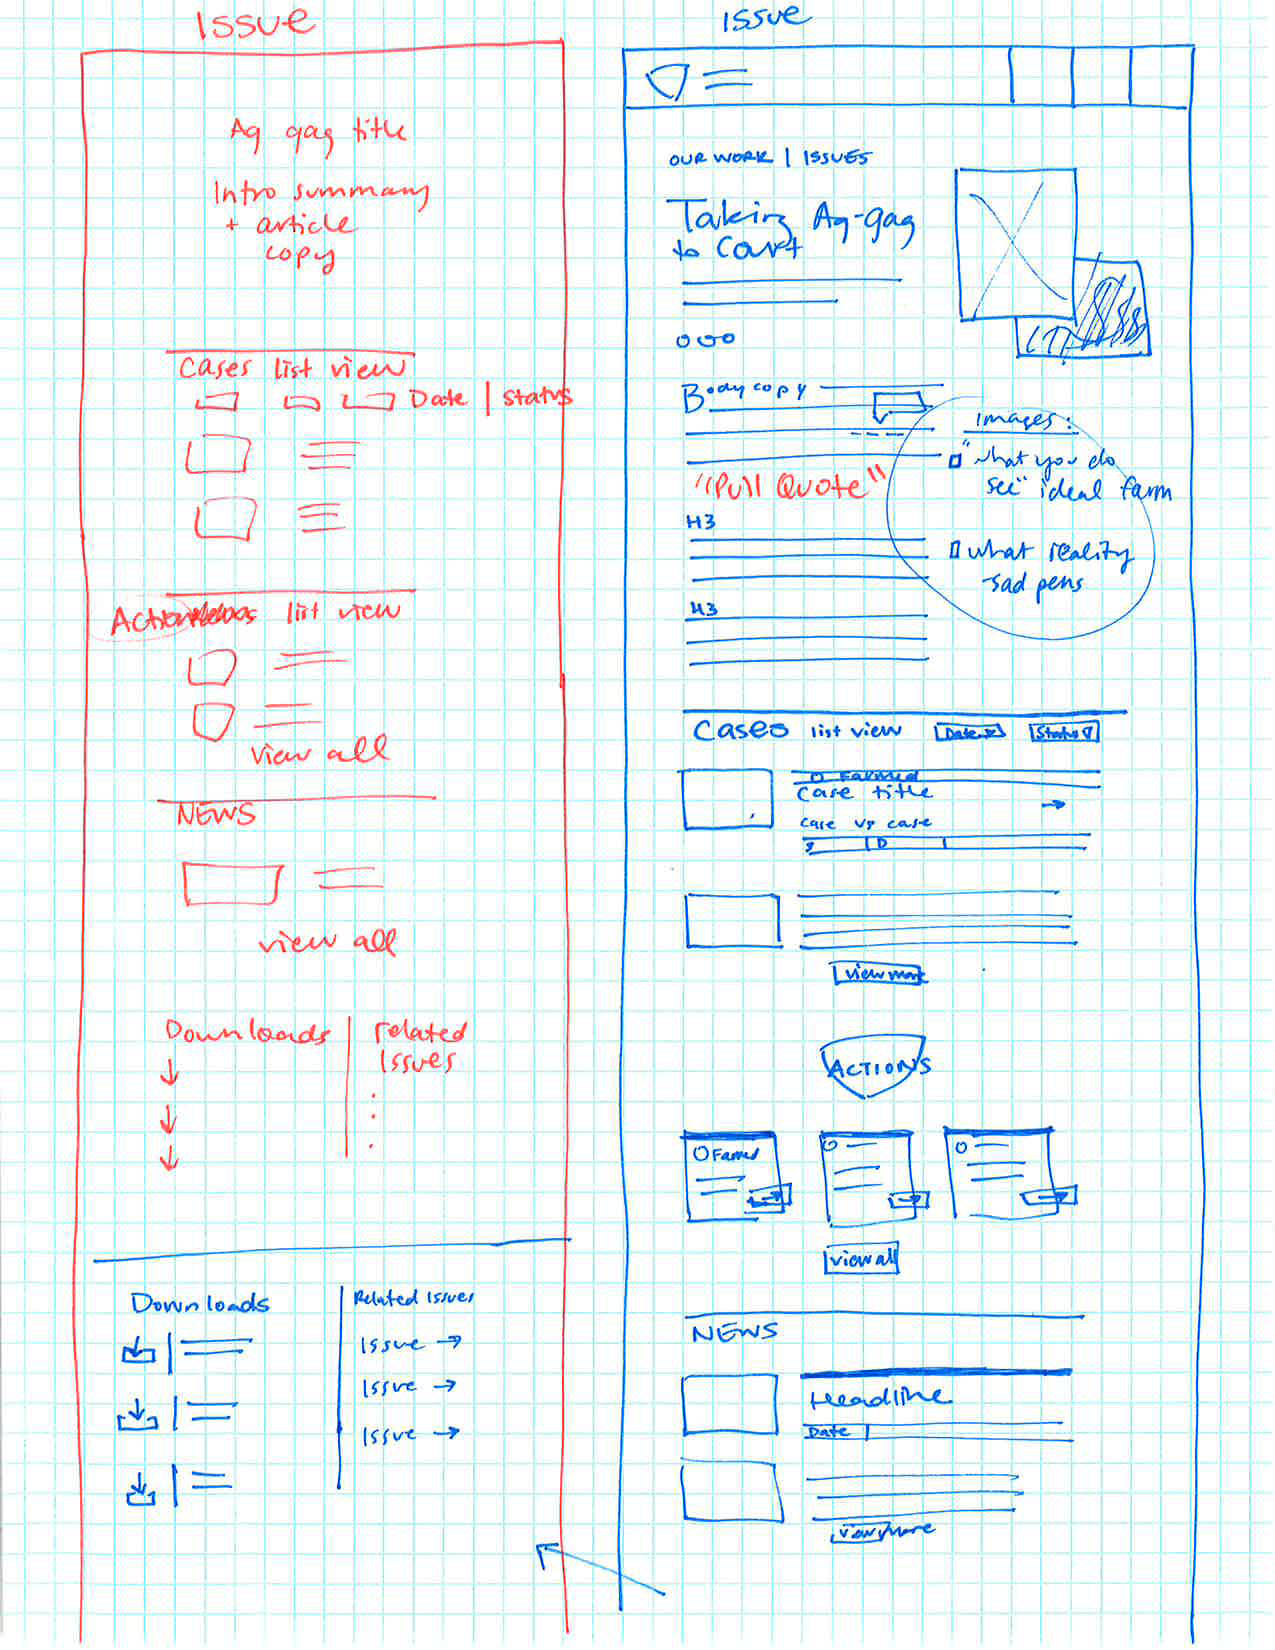 ISSUE
Ag gag title
Intro summary
+ article
copy
Cases list view
Date | Status
Action list view
view all
NEWS
view all
Downloads
related
Issues
Downloads
Related Issues
Issue →
Issue →
Issue →
ISSUE
OUR WORK | ISSUES
Taking Ag-gag
to Court
Body copy
"Pull Quote"
H3
H3
Images:
"what you do
see" ideal farm
what reality
-sad pens
Cases list view Date Status
Farmed
Case title
Case vs case
D
view more
ACTIONS
Farmed
view all
NEWS
Headline
Date
view more